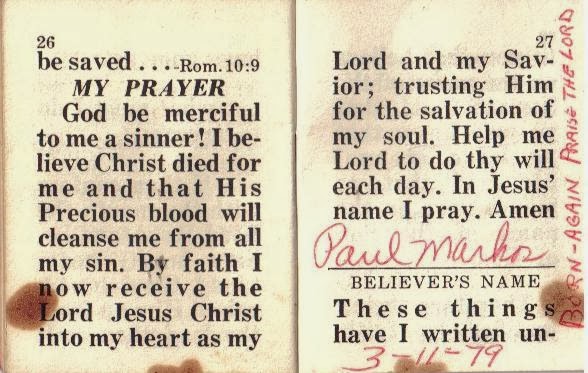 26
be saved . . . . -Rom. 10:9
MY PRAYER
God be merciful
to me a sinner! I be-
lieve Christ died for
me and that His
Precious blood will
cleanse me from all
my sin. By faith I
now receive the
Lord Jesus Christ
into my heart as my
27
Lord and my Sav-
ior; trusting Him
for the salvation of
my soul. Help me
Lord to do thy will
each day. In Jesus'
name I pray. Amen
Paul Markos
BELIEVER'S NAME
These things
have I written un-
3-11-79
BORN-AGAIN PRAISE THE LORD